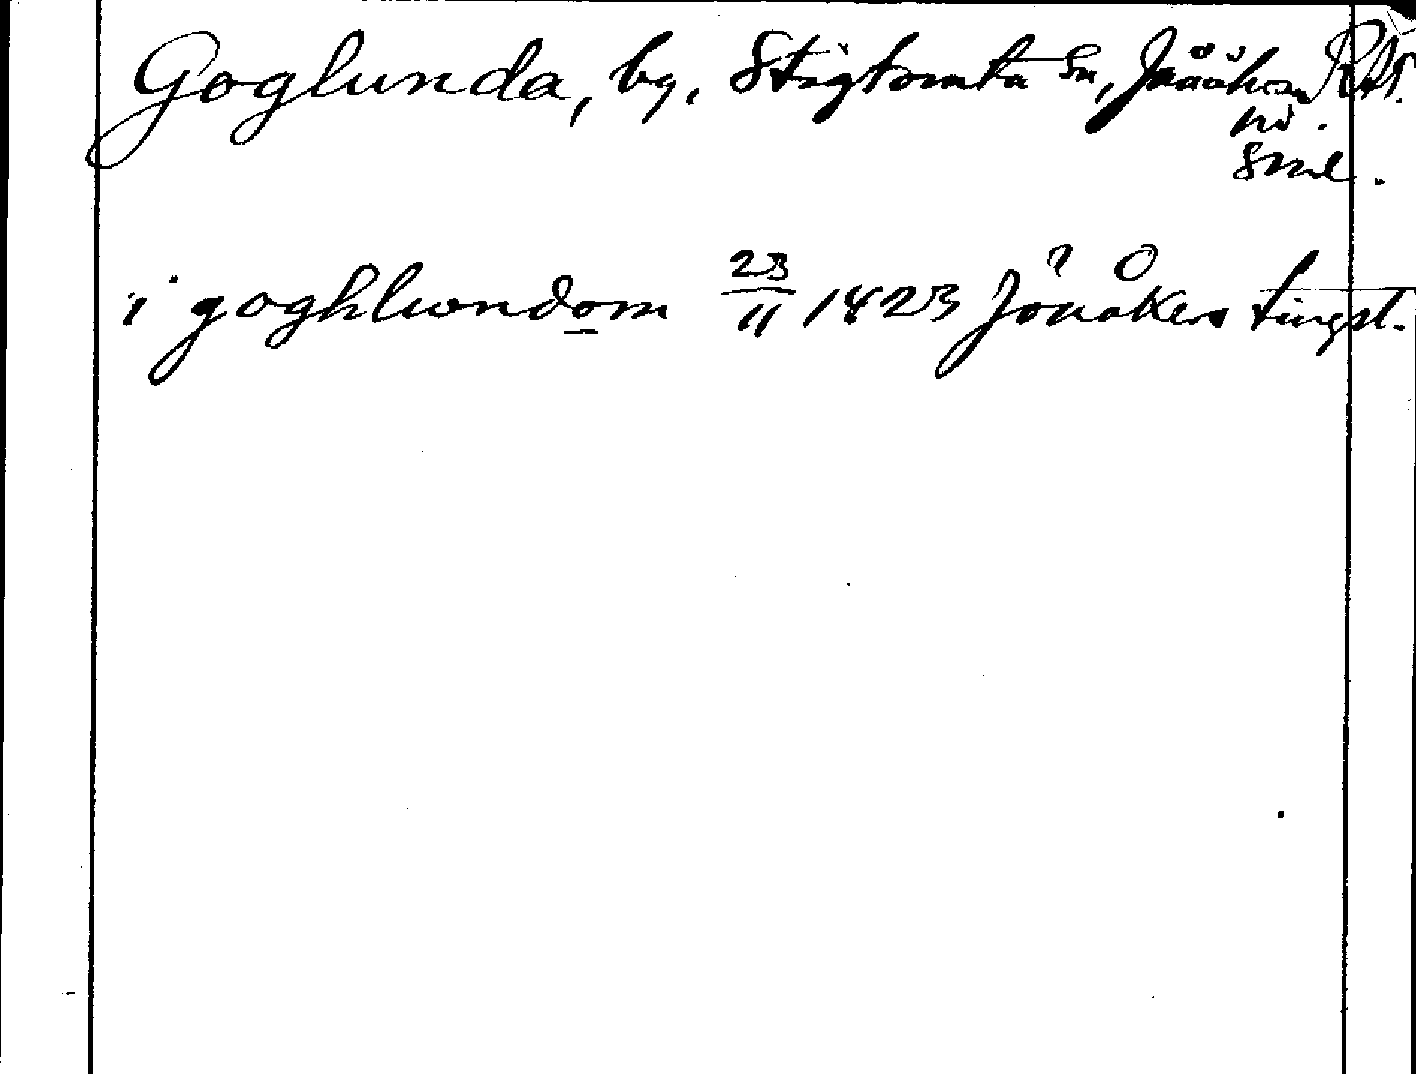 Goglunda, by, Stigtomta sn, Jönåkers RA.
hd.
Sml.
i goghlwndom 23/11 1423 Jönåkers tingst.